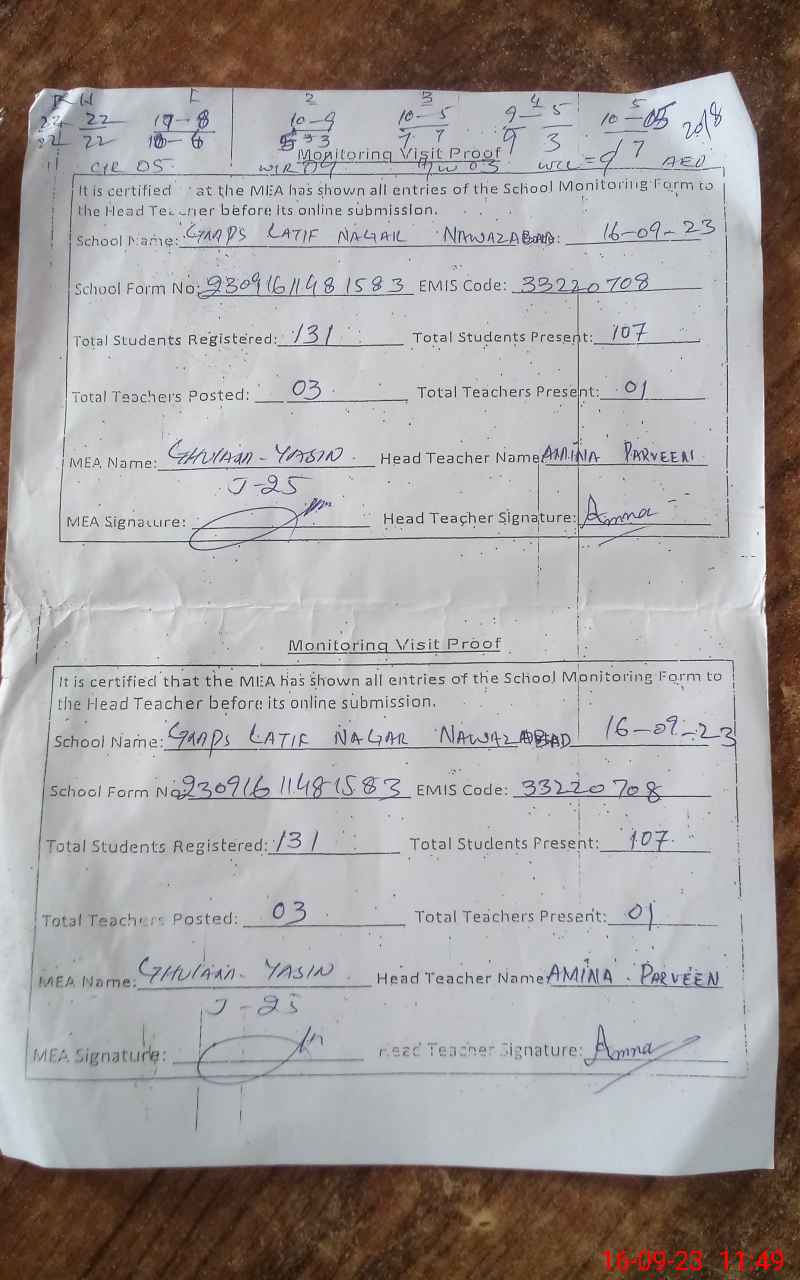 1 2 3 4 5
22 22 10-9 10-5 9-5 2018
22 22 7 7 9 3 7
CIR 05. = AEO
Monitoring Visit Proof
It is certified at the MEA has shown all entries of the School Monitoring Form to
the Head Teacher before its online submission.
School Name: GMMPS LATIF NAGAR NAWAZABAD: 16-09-23
School Form No: 23091611481583 EMIS Code: 33220708
Total Students Registered: 131 Total Students Present: 107
Total Teachers Posted: 03 Total Teachers Present: 01
MEA Name: GHULAM-YASIN. Head Teacher Name AMINA PARVEEN.
J-25
MEA Signature: Head Teacher Signature: Amna
Monitoring Visit Proof
It is certified that the MEA has shown all entries of the School Monitoring Form to
the Head Teacher before its online submission.
School Name: GMMPS LATIF NAGAR NAWAZABAD 16-09-23
School Form No: 23091611481583 EMIS Code: 33220708
Total Students Registered: 131 Total Students Present: 107
Total Teachers Posted: 03 Total Teachers Present: 01
MEA Name: GHULAM-YASIN Head Teacher Name AMINA PARVEEN
J-25
MEA Signature: Head Teacher Signature: Amna
16-09-23 11:49